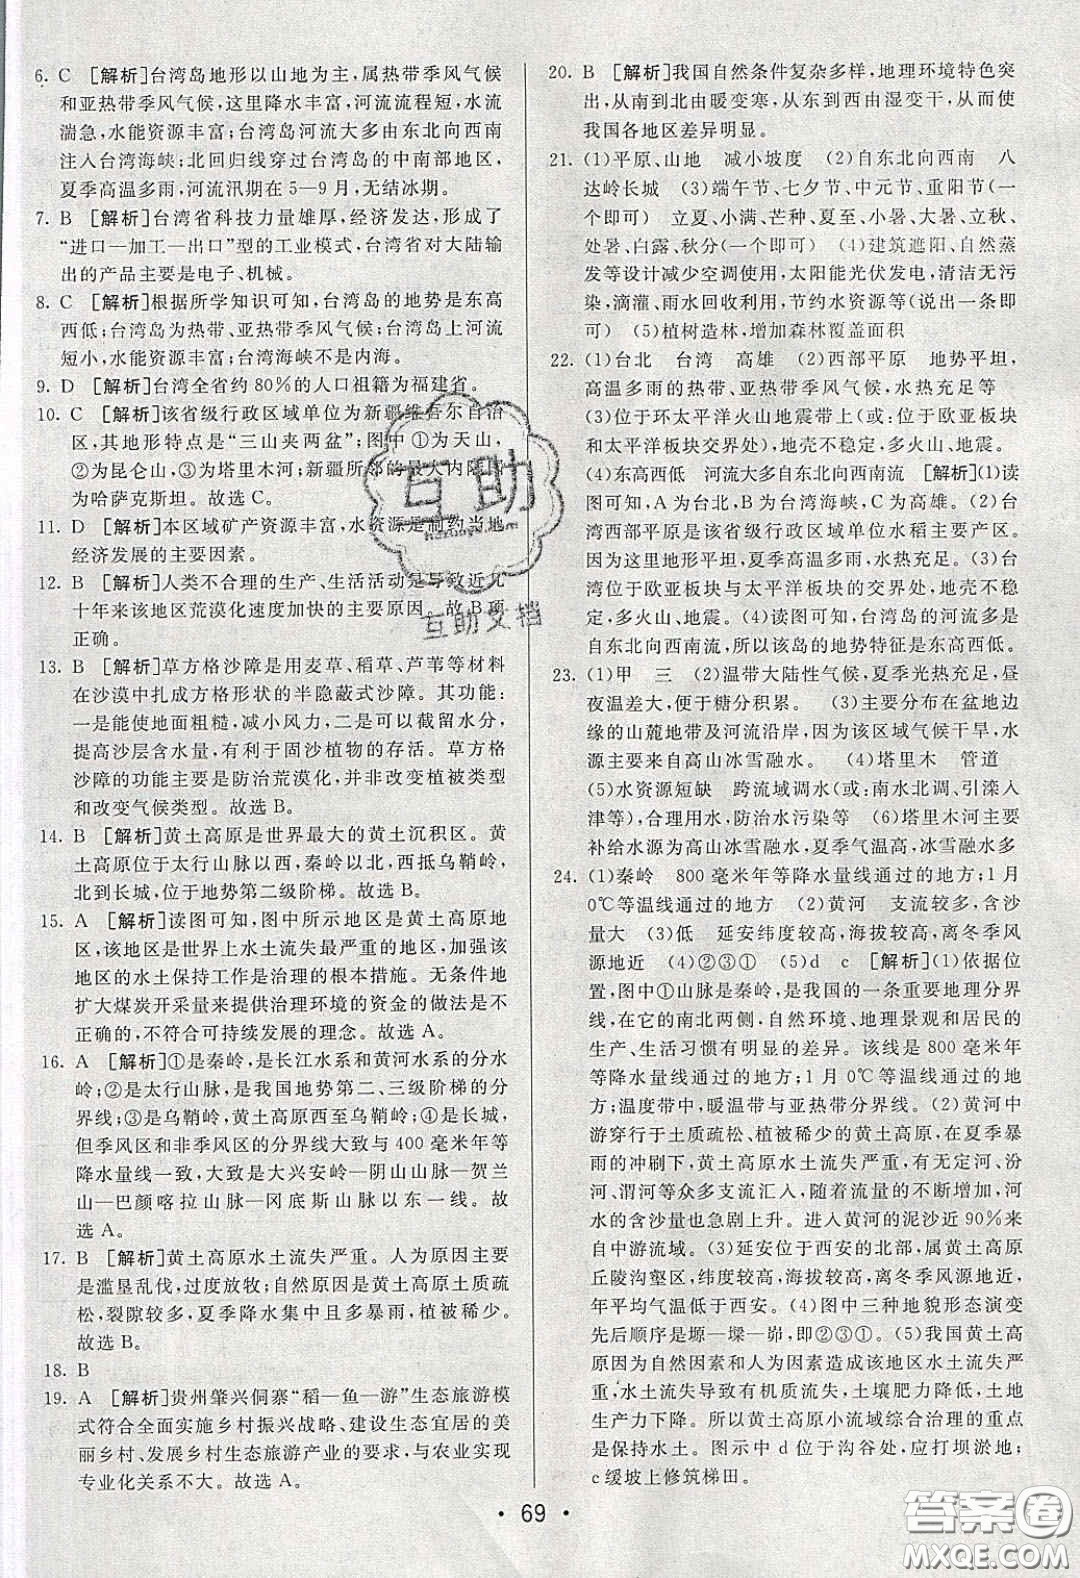 6. C [解析]台湾岛地形以山地为主,属热带季风气候
和亚热带季风气候,这里降水丰富,河流流程短,水流
湍急,水能资源丰富;台湾岛河流大多由东北向西南
注入台湾海峡;北回归线穿过台湾岛的中南部地区,
夏季高温多雨,河流汛期在5—9月,无结冰期。
7. B [解析]台湾省科技力量雄厚,经济发达,形成了
“进口—加工—出口”型的工业模式,台湾省对大陆输
出的产品主要是电子、机械。
8. C [解析]根据所学知识可知,台湾岛的地势是东高
西低;台湾岛为热带、亚热带季风气候;台湾岛上河流
短小,水能资源丰富;台湾海峡不是内海。
9. D [解析]台湾全省约80%的人口祖籍为福建省。
10. C [解析]该省级行政区域单位为新疆维吾尔自治
区,其地形特点是“三山夹两盆”;图中①为天山,
②为昆仑山,③为塔里木河;新疆所邻的最大内陆国
为哈萨克斯坦。故选C。
11. D [解析]本区域矿产资源丰富,水资源是制约当地
经济发展的主要因素。
12. B [解析]人类不合理的生产、生活活动是导致近几
十年来该地区荒漠化速度加快的主要原因。故B项
正确。
13. B [解析]草方格沙障是用麦草、稻草、芦苇等材料
在沙漠中扎成方格形状的半隐蔽式沙障。其功能:
一是能使地面粗糙,减小风力,二是可以截留水分,
提高沙层含水量,有利于固沙植物的存活。草方格
沙障的功能主要是防治荒漠化,并非改变植被类型
和改变气候类型。故选B。
14. B [解析]黄土高原是世界最大的黄土沉积区。黄
土高原位于太行山脉以西,秦岭以北,西抵乌鞘岭,
北到长城,位于地势第二级阶梯。故选B。
15. A [解析]读图可知,图中所示地区是黄土高原地
区,该地区是世界上水土流失最严重的地区,加强该
地区的水土保持工作是治理的根本措施。无条件地
扩大煤炭开采量来提供治理环境的资金的做法是不
正确的,不符合可持续发展的理念。故选A。
16. A [解析]①是秦岭,是长江水系和黄河水系的分水
岭;②是太行山脉,是我国地势第二、三级阶梯的分
界线;③是乌鞘岭,黄土高原西至乌鞘岭;④是长城,
但季风区和非季风区的分界线大致与400毫米年等
降水量线一致,大致是大兴安岭—阴山山脉—贺兰
山—巴颜喀拉山脉—冈底斯山脉以东一线。故
选A。
17. B [解析]黄土高原水土流失严重。人为原因主要
是滥垦乱伐,过度放牧;自然原因是黄土高原土质疏
松,裂隙较多,夏季降水集中且多暴雨,植被稀少。
故选B。
18. B
19. A [解析]贵州肇兴侗寨“稻—鱼—游”生态旅游模
式符合全面实施乡村振兴战略、建设生态宜居的美
丽乡村、发展乡村生态旅游产业的要求,与农业实现
专业化关系不大。故选A。
20. B [解析]我国自然条件复杂多样,地理环境特色突
出,从南到北由暖变寒,从东到西由湿变干,从而使
我国各地区差异明显。
21. (1)平原、山地 减小坡度 (2)自东北向西南 八
达岭长城 (3)端午节、七夕节、中元节、重阳节(一
个即可) 立夏、小满、芒种、夏至、小暑、大暑、立秋、
处暑、白露、秋分(一个即可) (4)建筑遮阳、自然蒸
发等设计减少空调使用,太阳能光伏发电,清洁无污
染,滴灌、雨水回收利用,节约水资源等(说出一条即
可) (5)植树造林,增加森林覆盖面积
22. (1)台北 台湾 高雄 (2)西部平原 地势平坦,
高温多雨的热带、亚热带季风气候,水热充足等
(3)位于环太平洋火山地震带上(或:位于欧亚板块
和太平洋板块交界处),地壳不稳定,多火山、地震。
(4)东高西低 河流大多自东北向西南流 [解析](1)读
图可知,A为台北,B为台湾海峡,C为高雄。(2)台
湾西部平原是该省级行政区域单位水稻主要产区。
因为这里地形平坦,夏季高温多雨,水热充足。(3)台
湾岛位于欧亚板块与太平洋板块的交界处,地壳不
稳定,多火山、地震。(4)读图可知,台湾岛的河流多自
东北向西南流,所以该岛的地势特征是东高西低。
23. (1)甲 三 (2)温带大陆性气候,夏季光热充足,昼
夜温差大,便于糖分积累。 (3)主要分布在盆地边
缘的山麓地带及河流沿岸,因为该区域气候干旱,水
源主要来自高山冰雪融水。 (4)塔里木 管道
(5)水资源短缺 跨流域调水(或:南水北调、引滦入
津等),节约用水,防治水污染等 (6)塔里木河主要
补给水源为高山冰雪融水,夏季气温高,冰雪融水多
24. (1)秦岭 800毫米年等降水量线通过的地方;1月
0℃等温线通过的地方 (2)黄河 支流较多,含沙
量大 (3)低 延安纬度较高,海拔较高,离冬季风
源地近 (4)②③① (5)d c [解析](1)依据位
置,图中①山脉是秦岭,是我国的一条重要地理分界
线,在它的南北两侧,自然环境、地理景观和居民的
生产、生活习惯有明显的差异。该线是800毫米年
等降水量线通过的地方;1月0℃等温线通过的地
方;温度带中,暖温带与亚热带分界线。(2)黄河中
游穿行于土质疏松、植被稀少的黄土高原,在夏季暴
雨的冲刷下,黄土高原水土流失严重,有无定河、汾
河、渭河等众多支流汇入,随着流量的不断增加,河
水的含沙量也急剧上升。进入黄河的泥沙近90%来
自中游流域。(3)延安位于西安的北部,属黄土高原
丘陵沟壑区,纬度较高,海拔较高,离冬季风源地近,
年平均气温低于西安。(4)图中三种地貌形态演变
先后顺序是塬—墚—峁,即②③①。(5)我国黄土高
原因自然因素和人文因素造成该地区水土流失严
重,水土流失导致有机质流失,土壤肥力下降,土地
生产力下降。所以黄土高原小流域综合治理的重点
是保持水土。图示中d位于沟谷处,应打坝淤地;
c缓坡上修筑梯田。
互助
互助文档
· 69 ·
答案圈
MXQE.COM